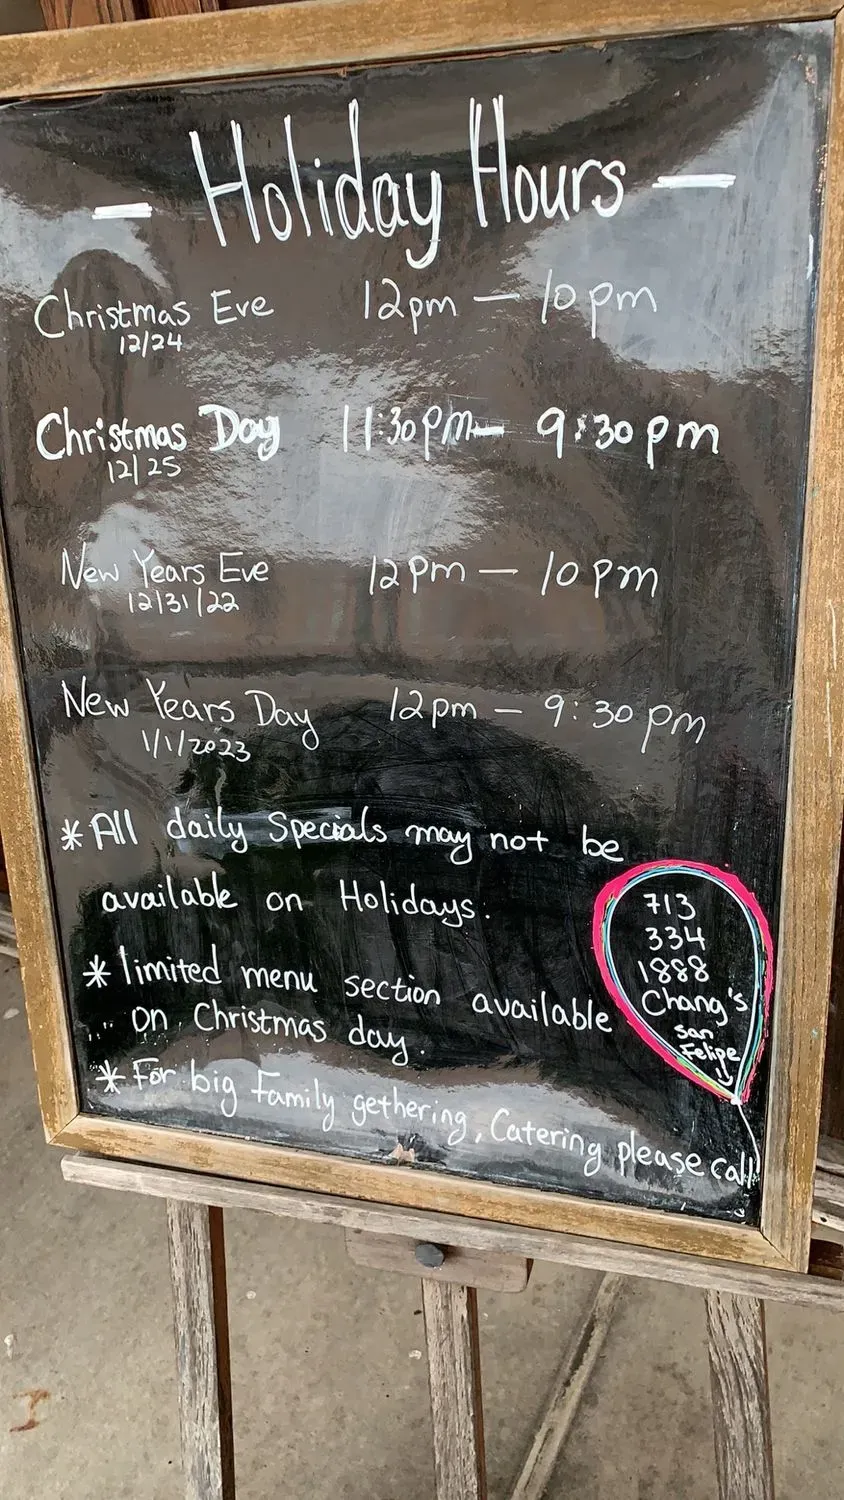 - Holiday Hours -
Christmas Eve 12pm - 10pm
12/24
Christmas Day 11:30pm - 9:30pm
12/25
New Years Eve 12pm - 10pm
12/31/22
New Years Day 12pm - 9:30pm
1/1/2023
*All daily Specials may not be
available on Holidays.
*limited menu section available
on Christmas day.
*For big Family gethering, Catering please call
713
334
1888
Chang's
san
Felipe